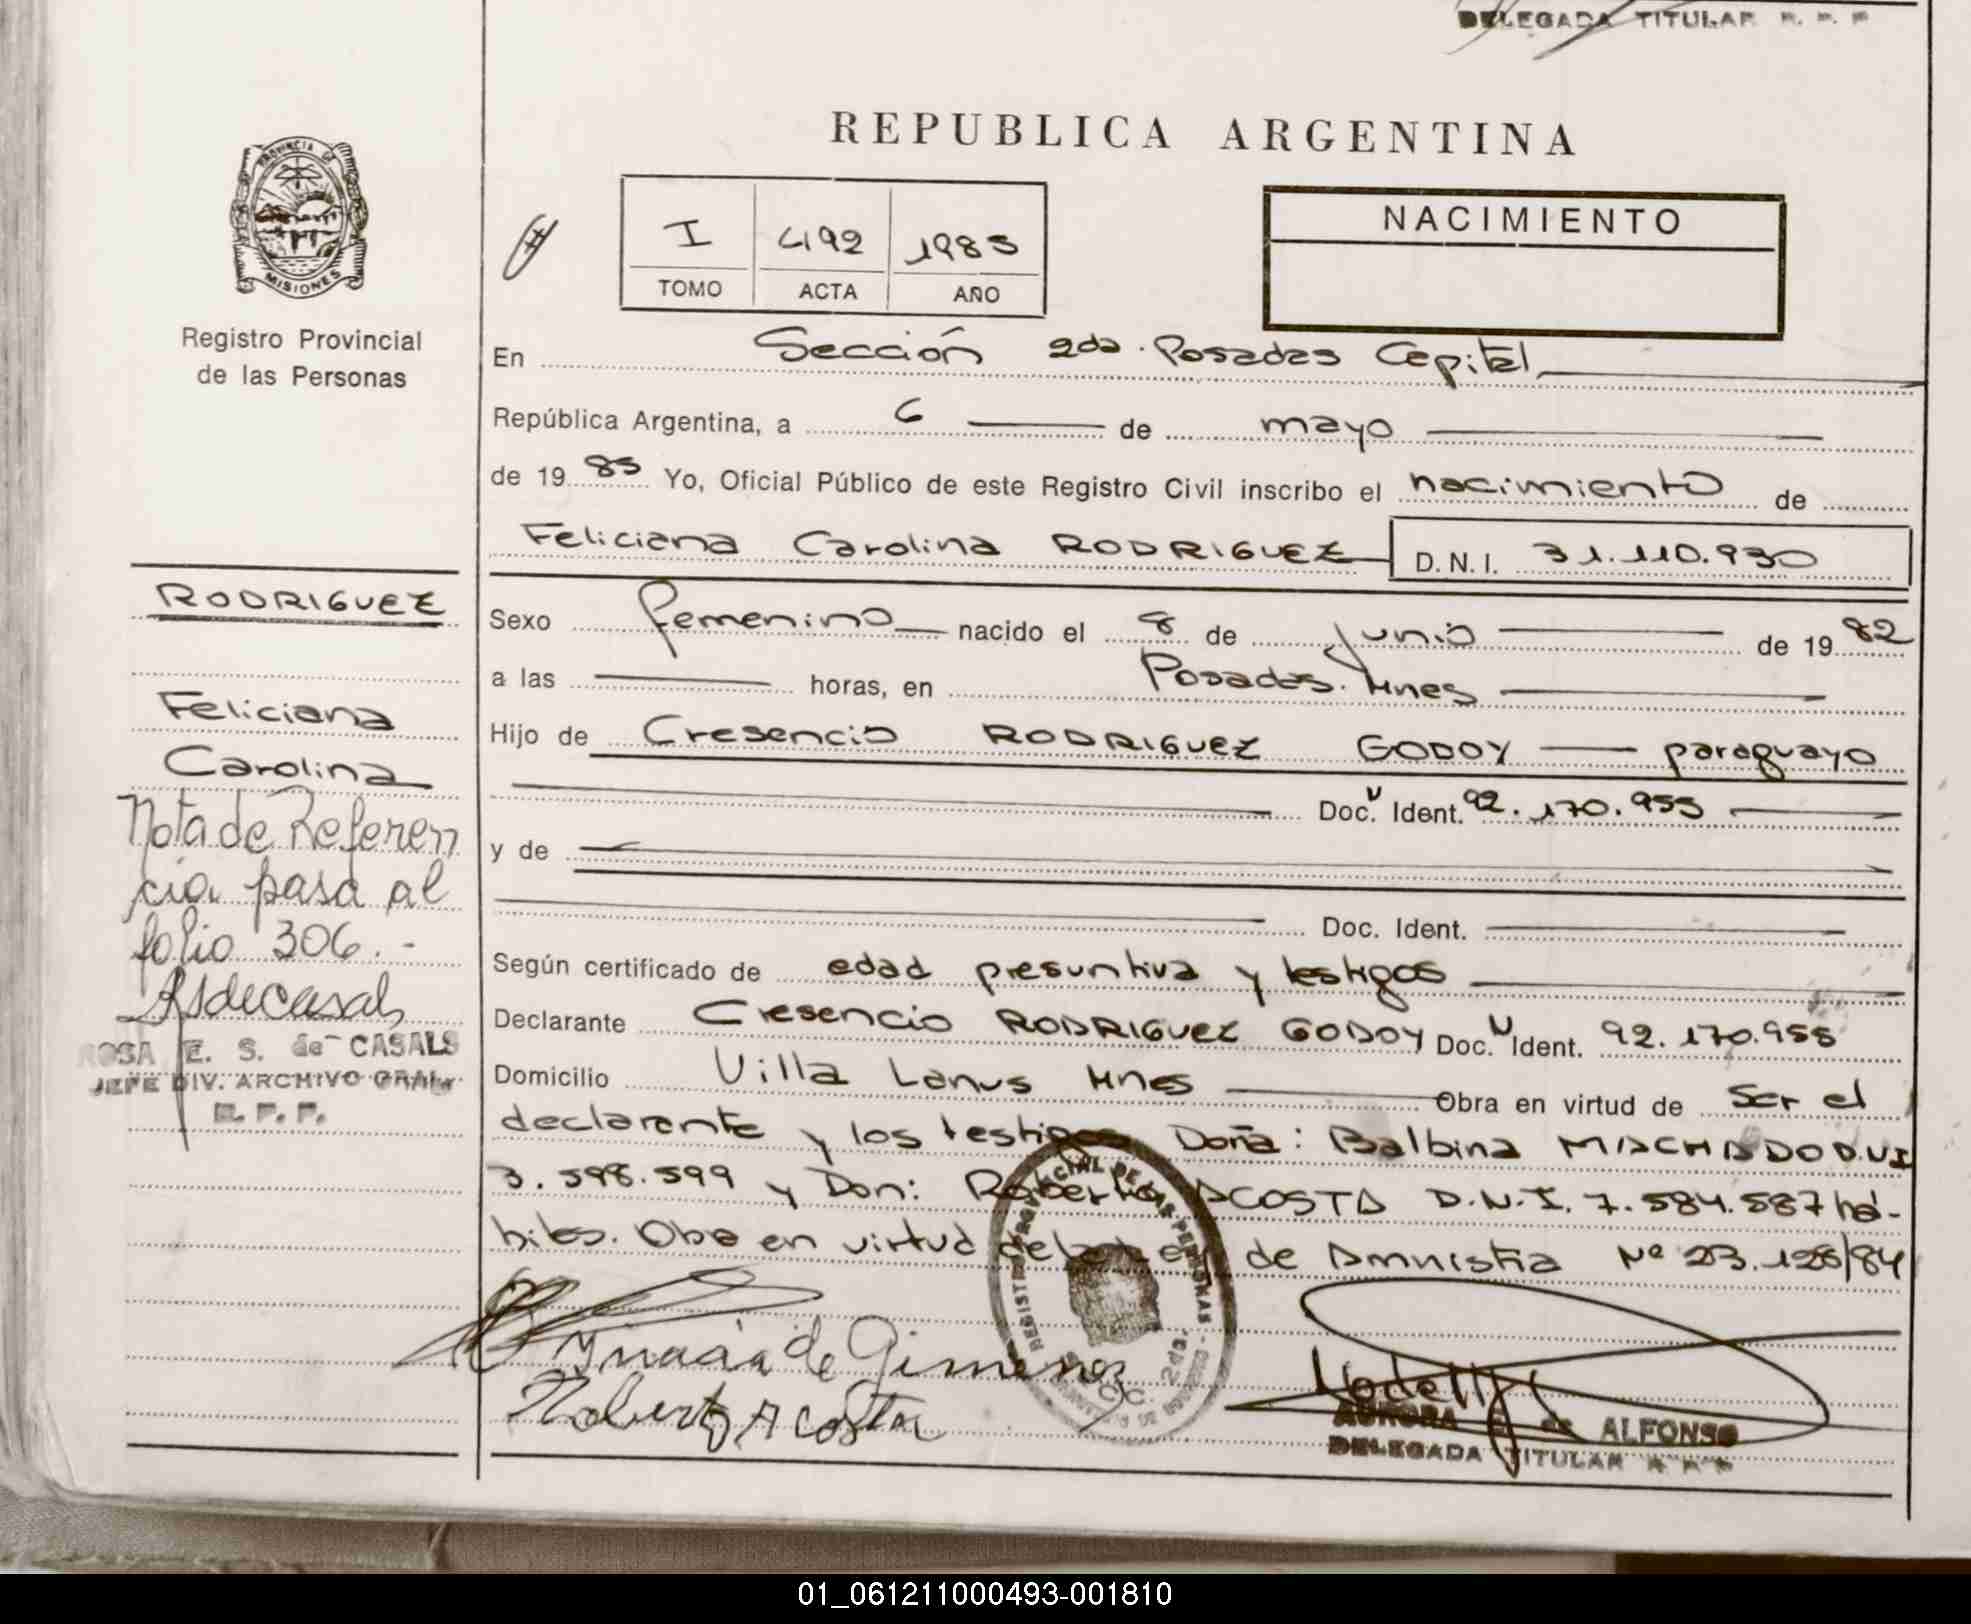 DELEGADA TITULAR R. P. P
REPUBLICA ARGENTINA
PROVINCIA DE
MISIONES
I 492 1985
TOMO ACTA AÑO
NACIMIENTO
Registro Provincial
de las Personas
En Sección 2da. Posadas Capital
República Argentina, a 6 de mayo
de 1985 Yo, Oficial Público de este Registro Civil inscribo el nacimiento de
Feliciana Carolina RODRIGUEZ D. N. I. 31.110.930
Sexo femenino nacido el 8 de junio de 1982
a las horas, en Posadas. Mnes
Hijo de Cresencio RODRIGUEZ GODOY paraguayo
Doc. Ident. 92.170.955
y de
Doc. Ident.
Según certificado de edad presuntiva y testigos
Declarante Cresencio RODRIGUEZ GODOY Doc. Ident. 92.170.955
Domicilio Villa Lanus Mnes Obra en virtud de Ser el
declarante y los testigos Doña: Balbina MACHADO D.N.I
3.598.599 y Don: Roberto ACOSTA D.N.I. 7.584.587 há-
biles. Obra en virtud de la Ley de Amnistia Nº 23.128/84
RODRIGUEZ
Feliciana
Carolina
Nota de Referen
cia pasa al
folio 306.-
ROSA E. S. de CASALS
JEFE DIV. ARCHIVO GRAL.
R. P. P.
de Gimenez
Roberto Acosta
REGISTRO PROVINCIAL DE LAS PERSONAS
2da.
AURORA de ALFONSO
DELEGADA TITULAR
01_061211000493-001810